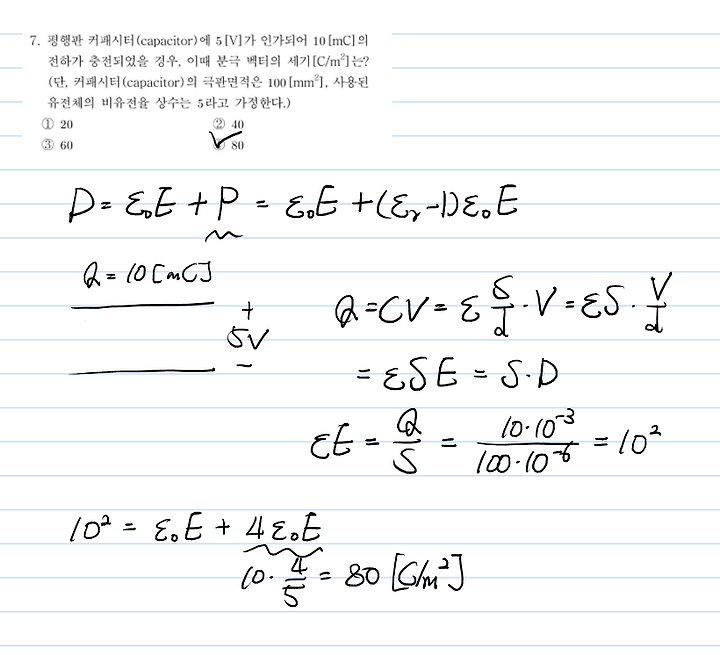 7. 평행판 커패시터(capacitor)에 5[V]가 인가되어 10[mC]의
전하가 충전되었을 경우, 이때 분극 벡터의 세기[C/m²]는?
(단, 커패시터(capacitor)의 극판면적은 100[mm²], 사용된
유전체의 비유전율 상수는 5라고 가정한다.)
① 20 ② 40
③ 60 ✓ 80
D = ε₀E + P = ε₀E + (εᵣ-1)ε₀E
Q = 10[mC]
+
5V
-
Q = CV = ε S/d · V = εS · V/d
= εSE = S·D
εE = Q/S = 10·10⁻³/100·10⁻⁶ = 10²
10² = ε₀E + 4ε₀E
10· 4/5 = 80 [C/m²]